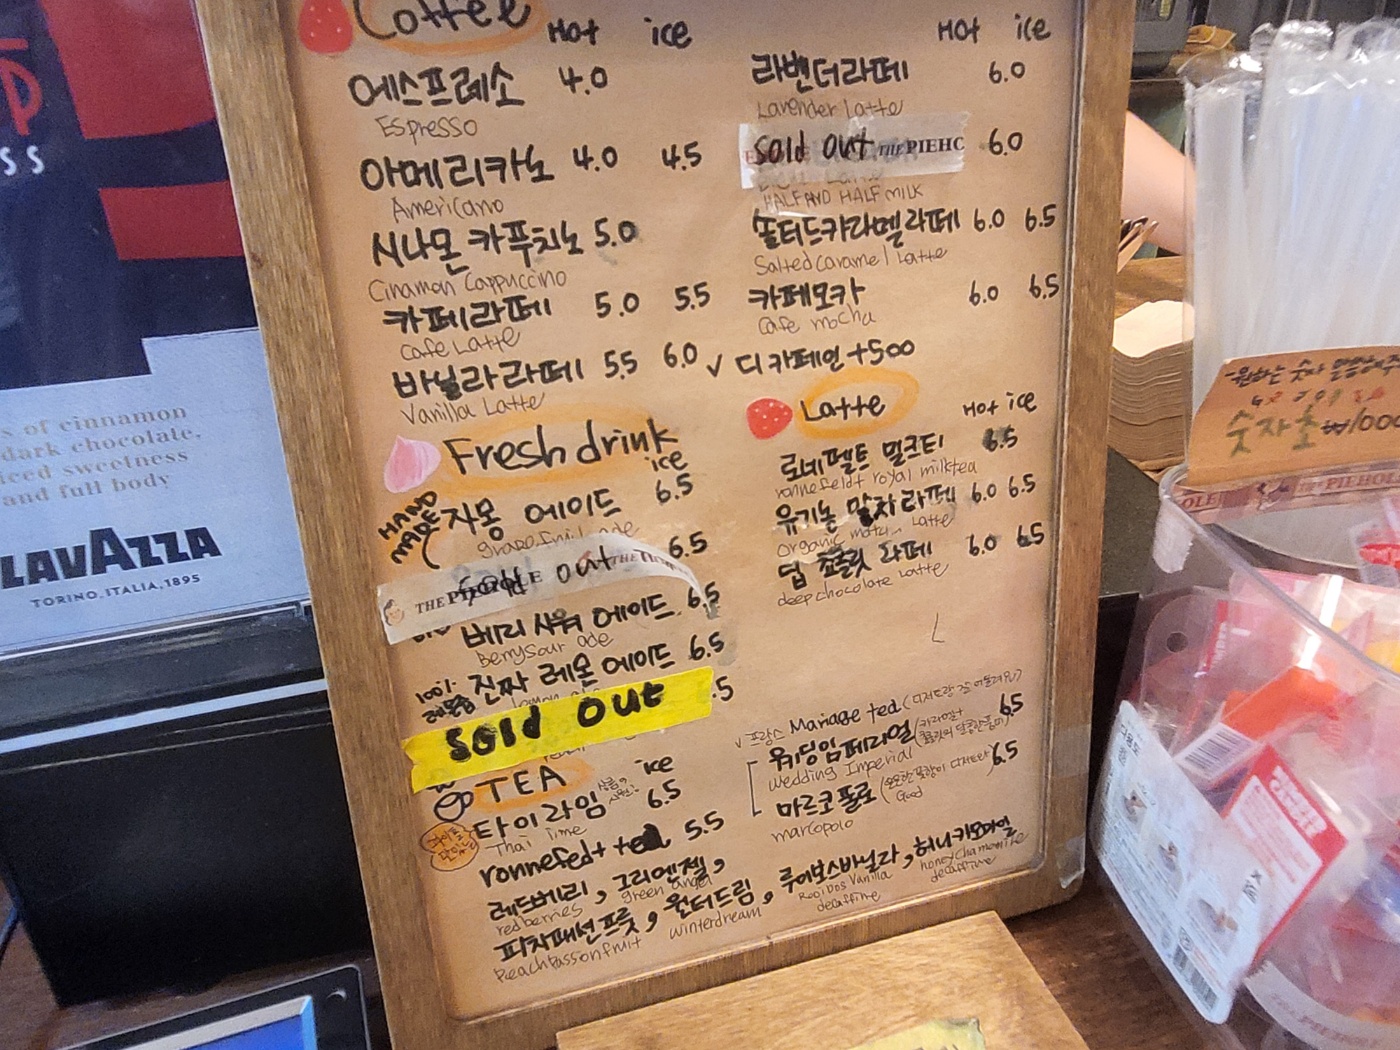 Coffee Hot ice
에스프레소 4.0
Espresso
아메리카노 4.0 4.5
Americano
시나몬 카푸치노 5.0
Cinamon Cappuccino
카페라떼 5.0 5.5
Cafe Latte
바닐라라떼 5.5 6.0
Vanilla Latte
Fresh drink
ice
HAND
MADE
자몽 에이드 6.5
ade
sold out 6.5
THE
베리 사워 에이드 6.5
Berrysour ade
100%
진짜 레몬 에이드 6.5
sold out .5
TEA ice
타이라임 6.5
Thai lime
ronnefedt tea 5.5
레드베리, 그린엔젤,
redberries green angel
피치패션프룻, 윈터드림,
Peachpassionfruit winterdream
루이보스바닐라, 허니카모마일
Rooibos vanilla honeychamomile
decaffine decaffine
Hot ice
라벤더라떼 6.0
Lavender Latte
sold out THE PIEHO 6.0
HALF AND HALF MILK
쏠티드카라멜라떼 6.0 6.5
Salted caramel Latte
카페모카 6.0 6.5
Cafe mocha
√ 디카페인 +500
Latte Hot ice
로네펠트 밀크티 6.5
ronnefeldt royal milktea
유기농 말차라떼 6.0 6.5
Organic Latte
딥 쵸콜릿 라떼 6.0 6.5
deep chocolate Latte
√ 프랑스 Mariage
웨딩임페리얼 6.5
Wedding Imperial
마르코폴로 6.5
Good
marcopolo
SS
s of cinnamon
dark chocolate,
iced sweetness
and full body
LAVAZZA
TORINO, ITALIA, 1895
숫자초 ₩1000